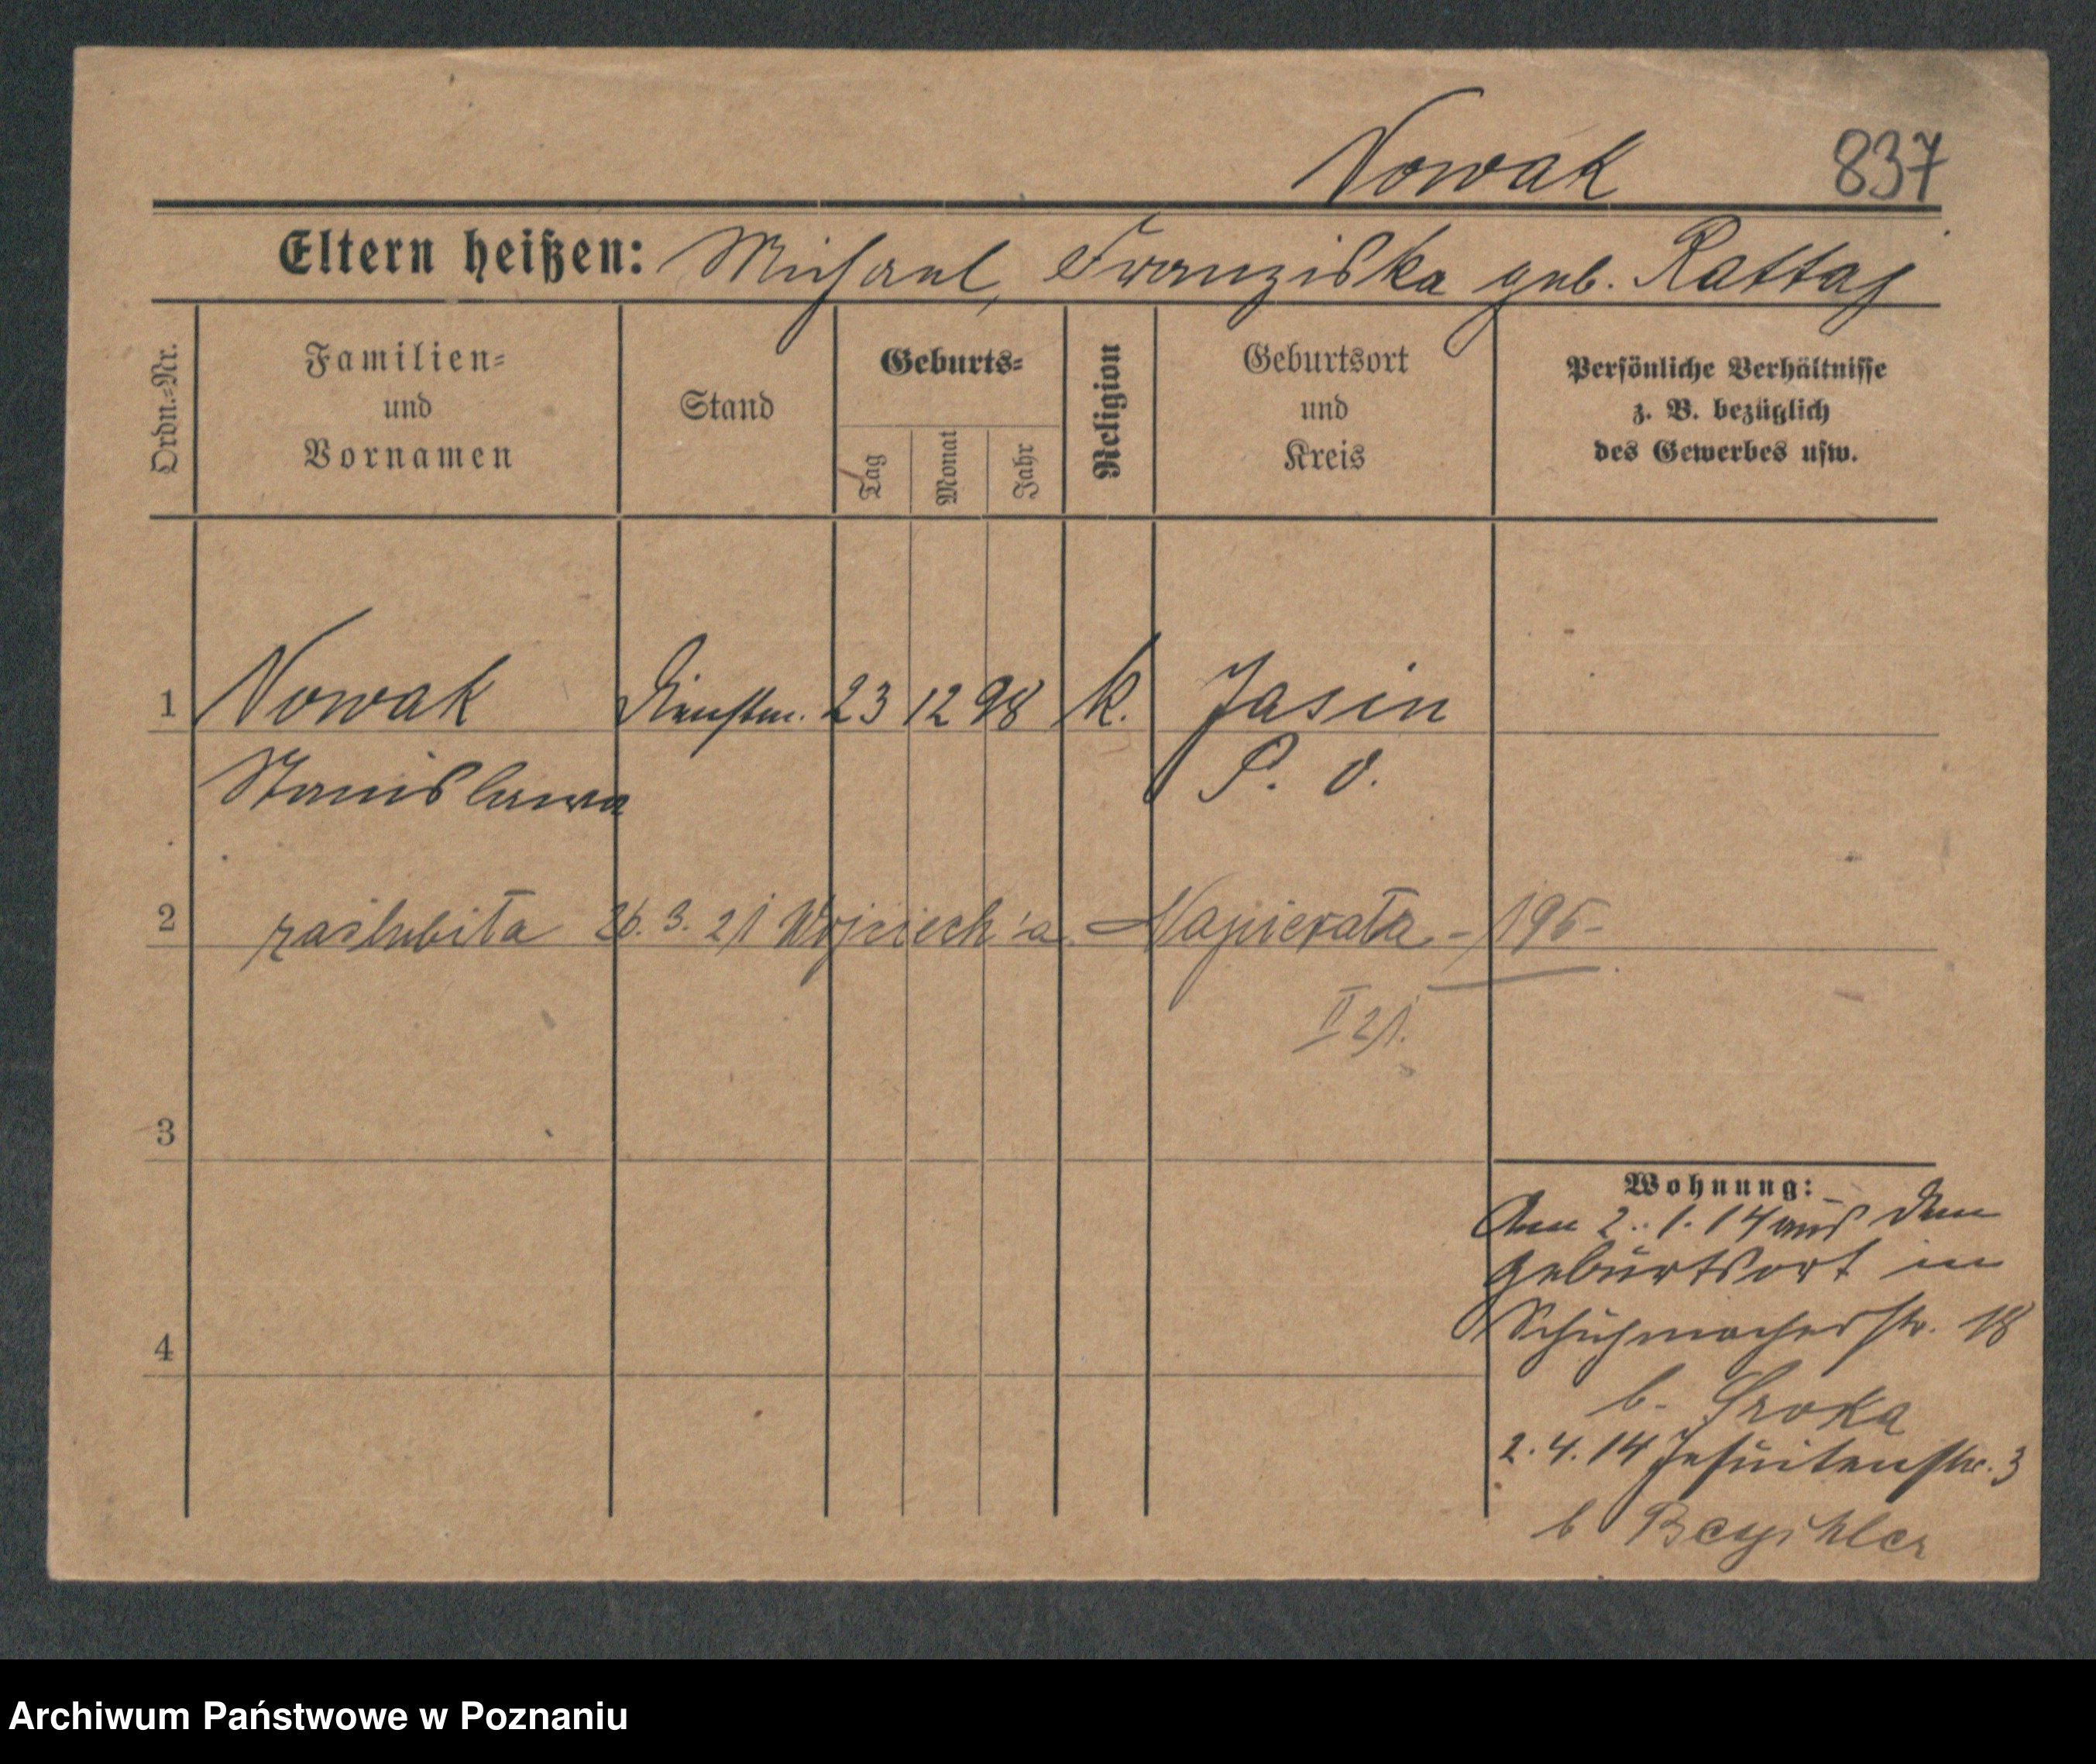 Nowak 837
Eltern heißen: Michael, Franziska geb. Rattaj
Ordn.=Nr.
Familien=
und
Vornamen
Stand
Geburts=
Tag
Monat
Jahr
Religion
Geburtsort
und
Kreis
Persönliche Verhältnisse
z. B. bezüglich
des Gewerbes usw.
1 Nowak Dienstm. 23 12 98 k. Jasin
Stanislawa P. O.
2 zaślubiła 26. 3. 21 Wojciech'a Napierała - 196-
II 21.
3
Wohnung:
Am 2. 1. 14 aus dem
Geburtsort in
4 Schuhmacherstr. 18
b. Sroka
2. 4. 14 Jesuitenstr. 3
b
Archiwum Państwowe w Poznaniu